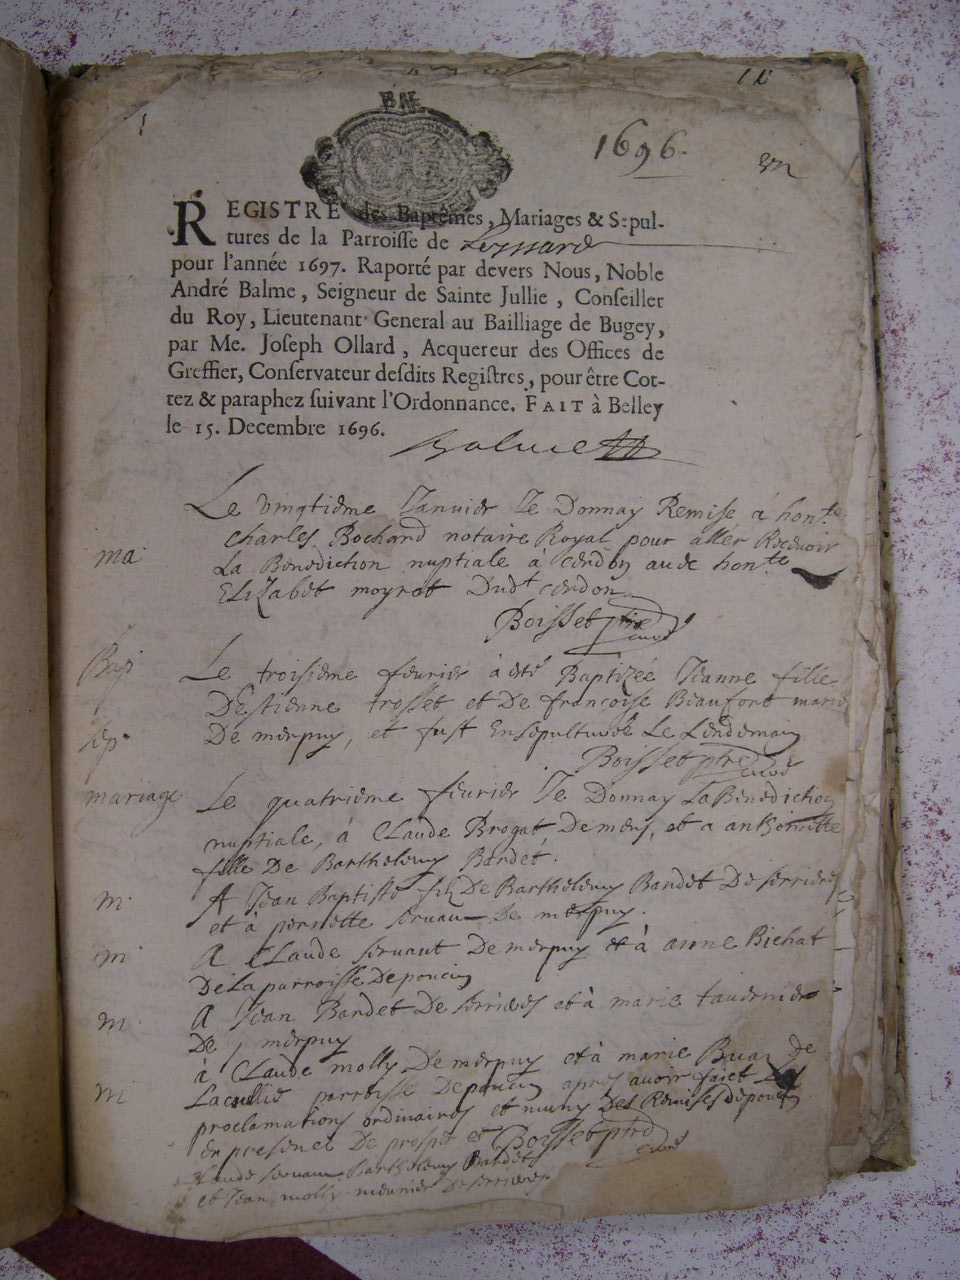 1696.
REGISTRE des Baptêmes, Mariages & Sepul-
tures de la Parroisse de Leyssard
pour l'année 1697. Raporté par devers Nous, Noble
André Balme, Seigneur de Sainte Jullie, Conseiller
du Roy, Lieutenant General au Bailliage de Bugey,
par Me. Joseph Ollard, Acquereur des Offices de
Greffier, Conservateur desdits Registres, pour être Cot-
tez & paraphez suivant l'Ordonnance. FAIT à Belley
le 15. Decembre 1696.
Balme
Le vingtieme Janvier Je Donnay Remise á hon.te
Charles Bochard notaire Royal pour aller Recevoir
ma. La Benediction nuptiale à Cerdon avec hon.te
Elizabet moyret Dud.t cerdon
Boisset ptre curé
Bap Le troisieme fevrier à eté Baptizée Jeanne fille
D'estienne trosset et De francoise Beaufort mariés
sep. De merpuy, et fust Ensepulturée Le Lendemain
Boisset ptre curé
mariage Le quatrieme fevrier Je Donnay La Benediction
nuptiale, á Claude Brogat De et a anthoinette
fille De Barthelemy Bardet.
m. A Jean Baptiste filz De Barthelemy Bardet De serrieres
et à pernette De merpuy.
m A Claude servant De merpuy et à anne Bichat
De La parroisse De poncin
m. A Jean Bardet De serrieres et à marie tavernier
De merpuy
à Claude molly De merpuy et à marie de
m parroisse De poncin apres avoir faict Les
proclamations ordinaires et muny Des Remises De poncin
En presence De et Boisset ptre curé
Claude servant Barthelemy Bardet
et Jean molly meunier De serrieres.